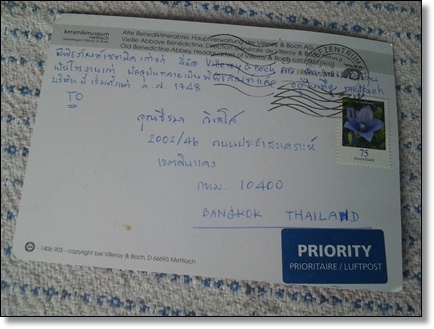 keramikmuseum
mettlach
Alte Benediktinerabtei, Hauptverwaltung der Villeroy & Boch AG
Vieille Abbaye Bénédictine, Direction Générale de Villeroy & Boch
Old Benedictine Abbey Headquarters of Villeroy & Boch AG
พิพิธภัณฑ์เซรามิค เก่าแก่ ที่นี่ Villeroy & Boch
เป็นโรงงานเก่า ปัจจุบันกลายเป็นพิพิธภัณฑ์
บริษัทนี้ เริ่มตั้งแต่ ค.ศ. 1748
TO
คุณธีรมา
2002/46 ถนนประชาสงเคราะห์
เขตดินแดง
กทม. 10400
BANGKOK THAILAND
75
Deutschland
PRIORITY
PRIORITAIRE / LUFTPOST
1406 903 - copyright bei Villeroy & Boch, D 66693 Mettlach